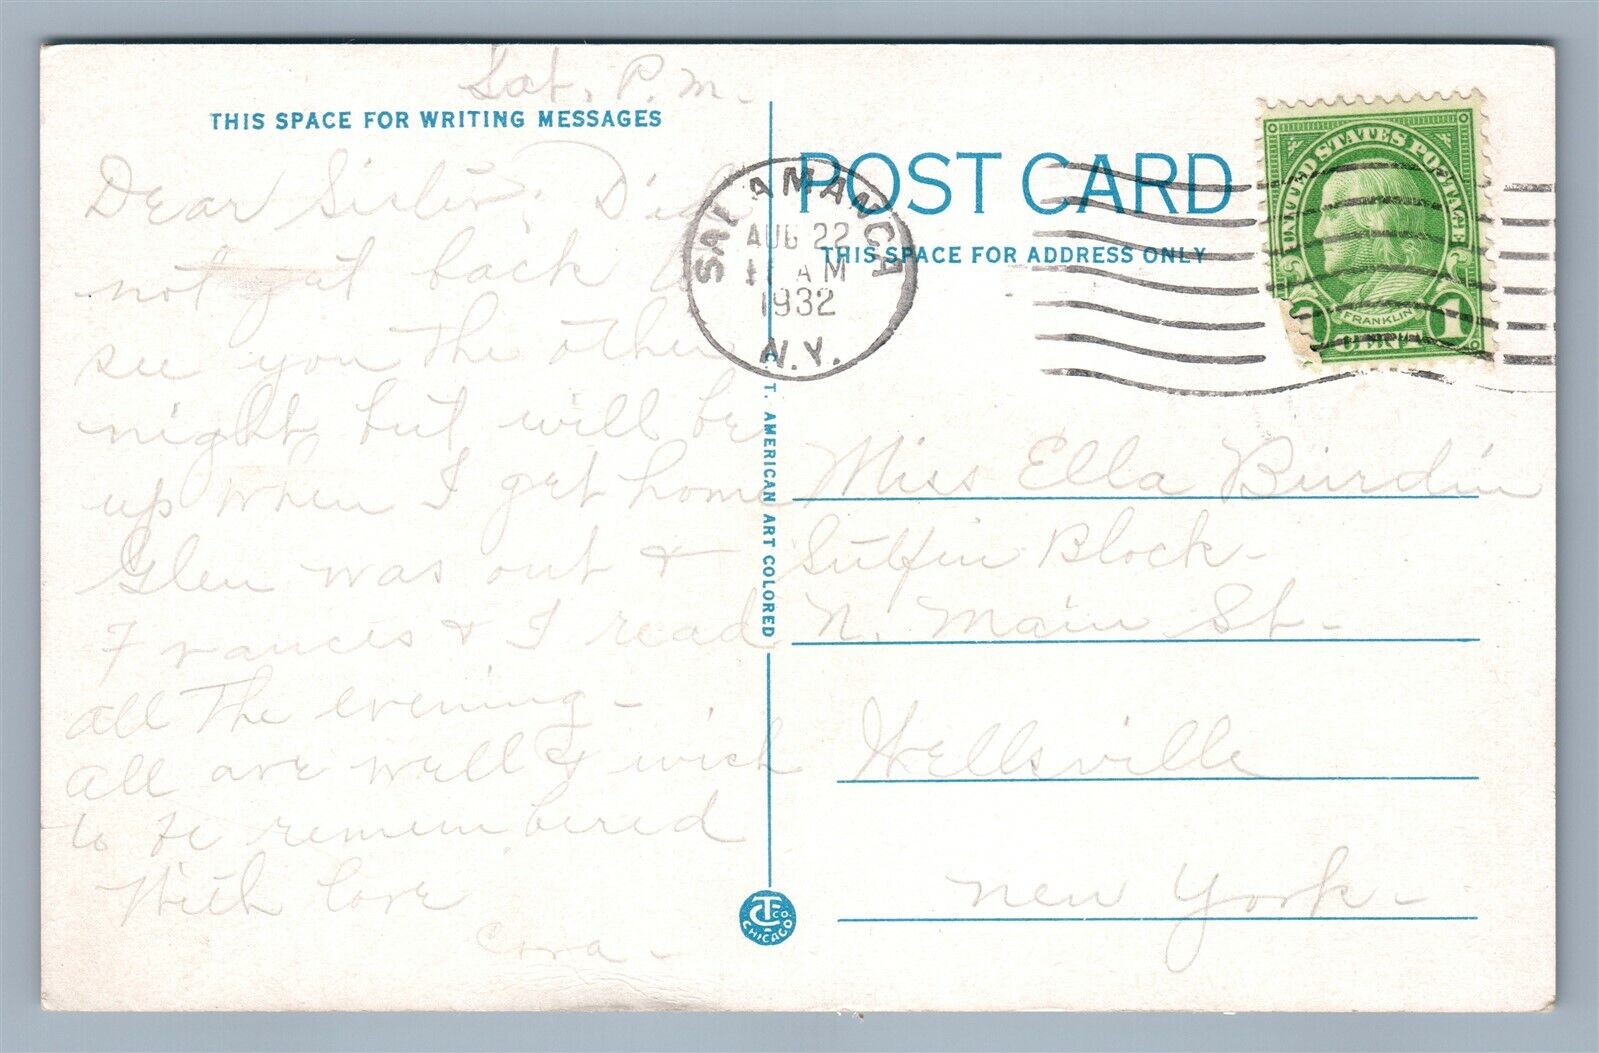 Sat. P.M.
THIS SPACE FOR WRITING MESSAGES
Dear Sister; Did
not get back to
see you the other
night but will be
up when I get home
Glen was out &
Frances & I read
all the evening -
All are well & wish
to be remembered
With love
Cora -
POST CARD
THIS SPACE FOR ADDRESS ONLY
SALAMANCA
AUG 22
AM
1932
N.Y.
UNITED STATES POSTAGE
FRANKLIN
1 CENT 1
C. T. AMERICAN ART COLORED
Miss Ella Burdin
Block -
N. Main St. -
Wellsville
New York -
CTCO
CHICAGO